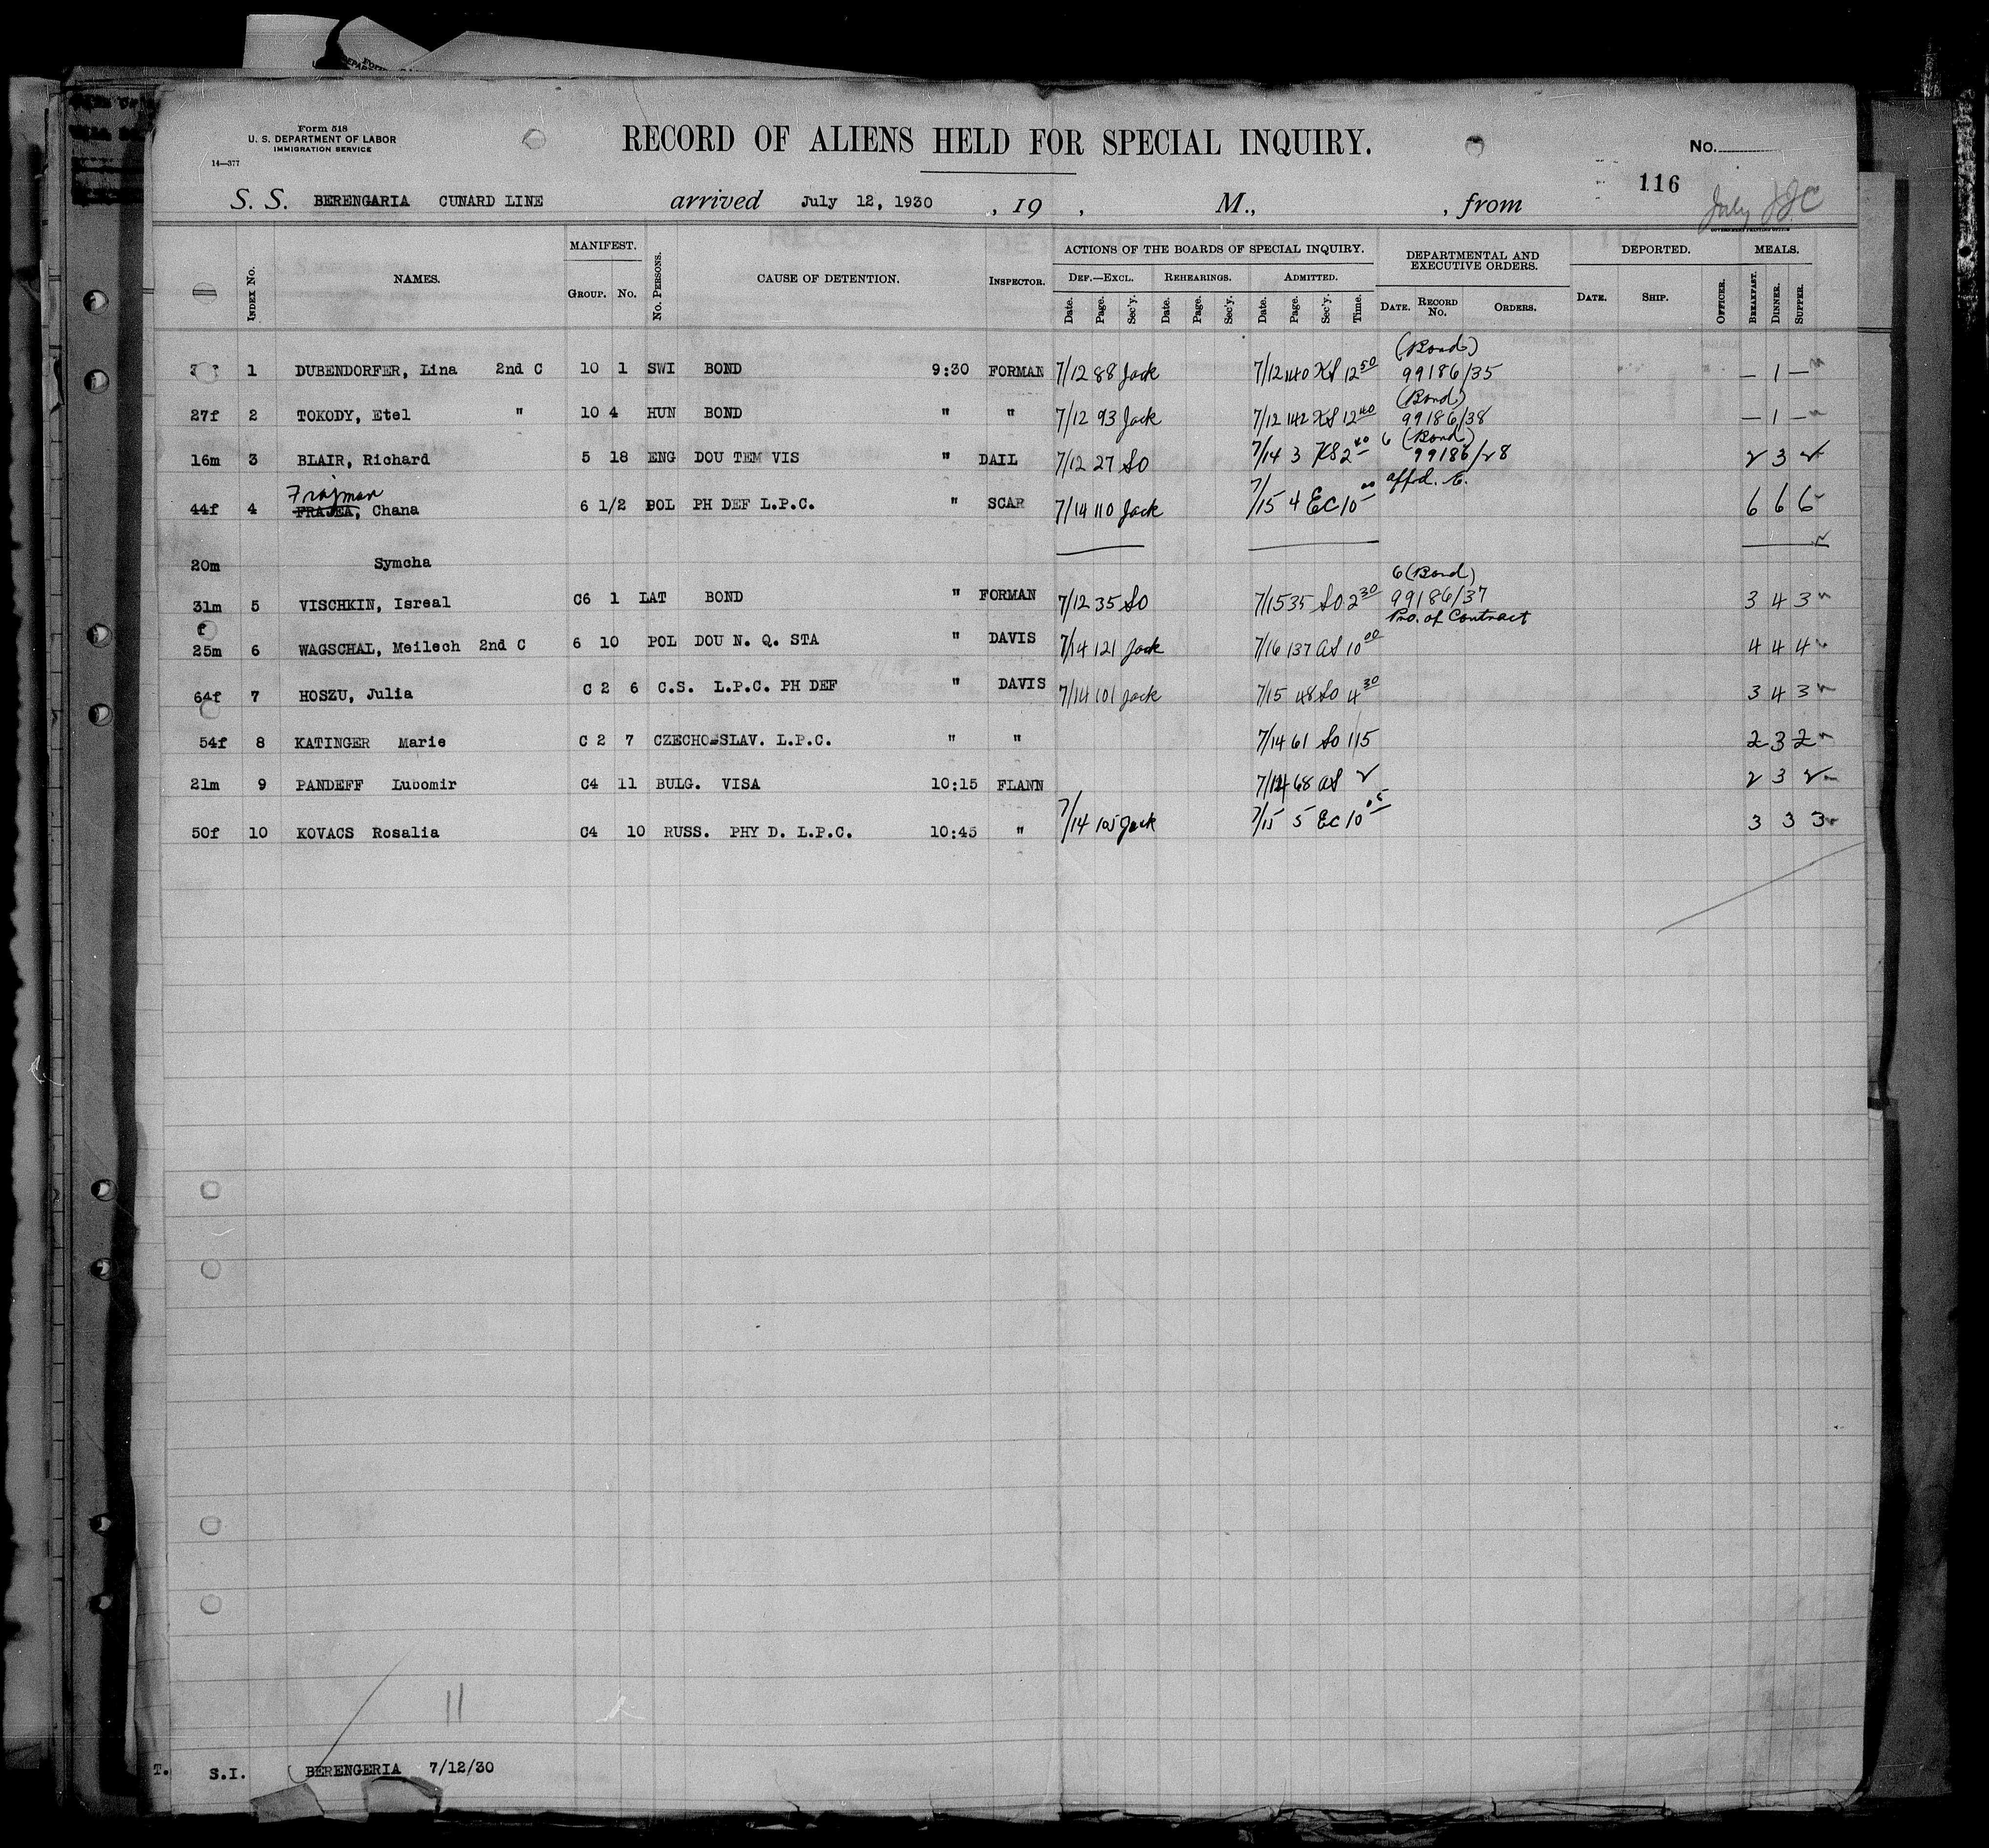 Form 518
U. S. DEPARTMENT OF LABOR
IMMIGRATION SERVICE
14—377
RECORD OF ALIENS HELD FOR SPECIAL INQUIRY.
No.
116
S. S. BERENGARIA CUNARD LINE arrived July 12, 1930 , 19 , M., , from
July
GOVERNMENT PRINTING OFFICE
INDEX No. NAMES. MANIFEST. GROUP. No. No. PERSONS. CAUSE OF DETENTION. INSPECTOR. ACTIONS OF THE BOARDS OF SPECIAL INQUIRY. DEPARTMENTAL AND EXECUTIVE ORDERS. DEPORTED. MEALS.
DEF.—EXCL. REHEARINGS. ADMITTED.
Date. Page. Sec'y. Date. Page. Sec'y. Date. Page. Sec'y. Time. DATE. RECORD No. ORDERS. DATE. SHIP. OFFICER. BREAKFAST. DINNER. SUPPER.
(Bond)
1 DUBENDORFER, Lina 2nd C 10 1 SWI BOND 9:30 FORMAN 7/12 88 Jack 7/12 140 KS 12 50 99186/35 — 1 —
(Bond)
27f 2 TOKODY, Etel " 10 4 HUN BOND " " 7/12 93 Jack 7/12 142 KS 12 40 99186/38 — 1 —
6 (Bond)
16m 3 BLAIR, Richard 5 18 ENG DOU TEM VIS " DAIL 7/12 27 SO 7/14 3 KS 2 40 99186/28 2 3 2
affd. E.
Frajman
44f 4 FRAJEA, Chana 6 1/2 POL PH DEF L.P.C. " SCAR 7/14 110 Jack 7/15 4 EC 10 00 6 6 6
20m Symcha
6 (Bond)
31m 5 VISCHKIN, Isreal C6 1 LAT BOND " FORMAN 7/12 35 SO 7/15 35 SO 2 30 99186/37 3 4 3
Pro. of Contract
f
25m 6 WAGSCHAL, Meilech 2nd C 6 10 POL DOU N. Q. STA " DAVIS 7/14 121 Jack 7/16 137 AS 10 00 4 4 4
64f 7 HOSZU, Julia C 2 6 C.S. L.P.C. PH DEF " DAVIS 7/14 101 Jack 7/15 48 SO 4 30 3 4 3
54f 8 KATINGER Marie C 2 7 CZECHO-SLAV. L.P.C. " " 7/14 61 SO 115 2 3 2
21m 9 PANDEFF Lubomir C4 11 BULG. VISA 10:15 FLANN 7/14 68 AS 2 2 3 2
50f 10 KOVACS Rosalia C4 10 RUSS. PHY D. L.P.C. 10:45 " 7/14 105 Jack 7/15 5 EC 10 05 3 3 3
11
T. S.I. BERENGERIA 7/12/30